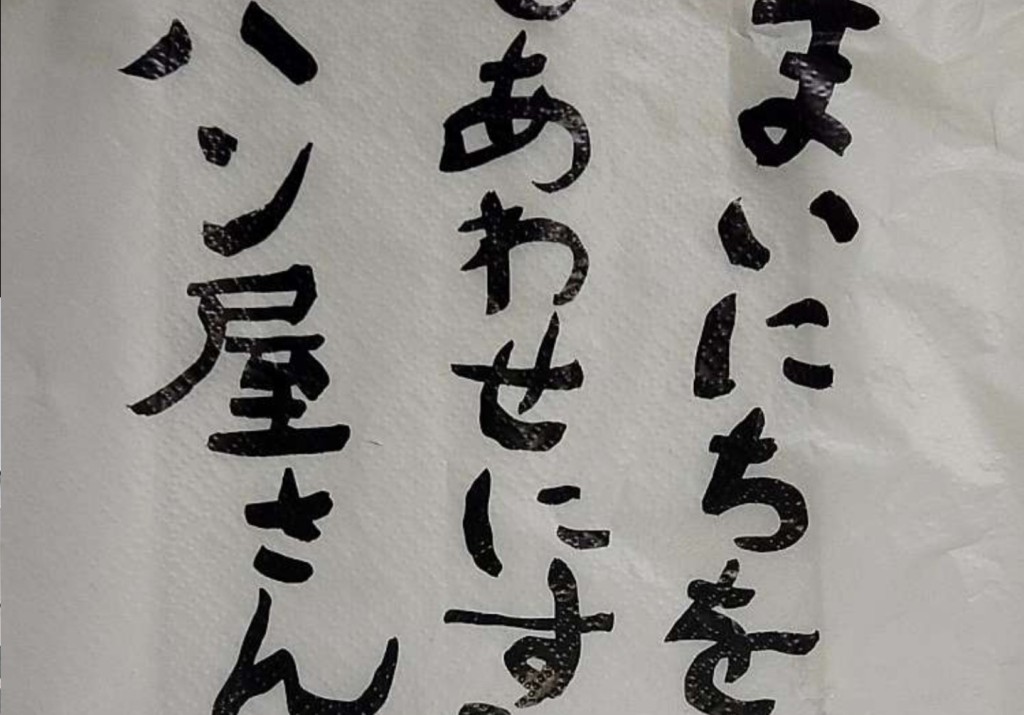 まいにちを
しあわせにする
ハン屋さん